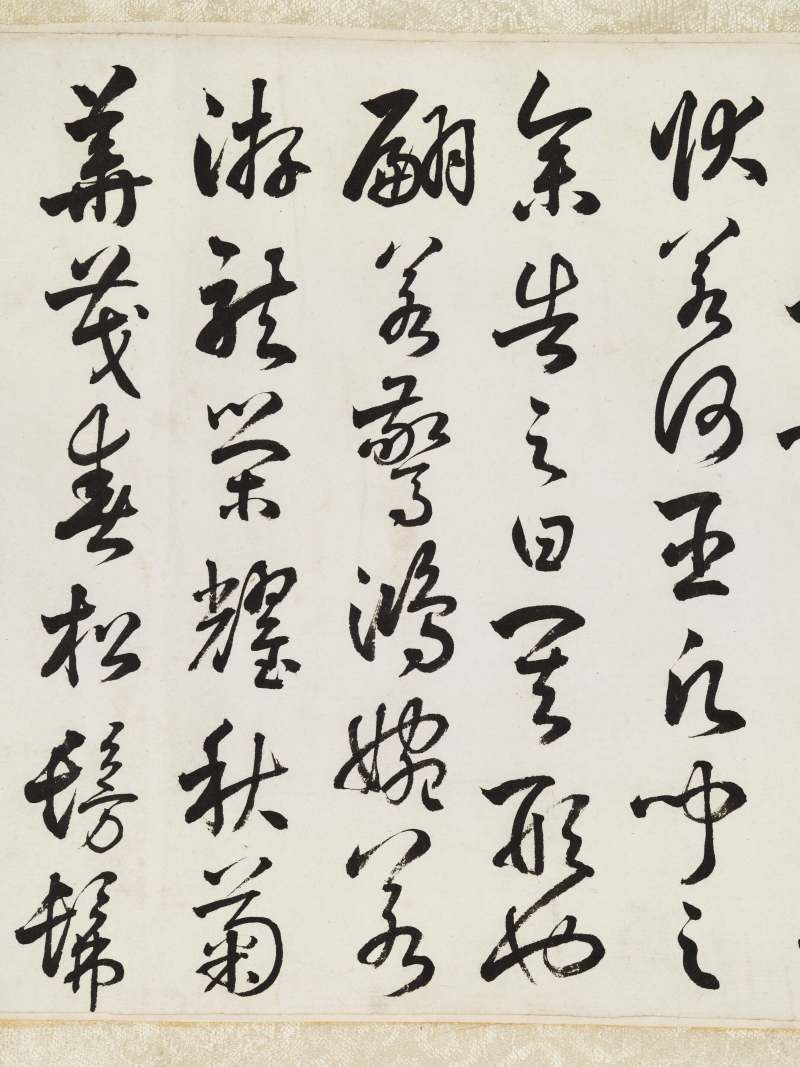 狀若何臣願聞之
余告之曰其形也
翩若驚鴻婉若
游龍榮耀秋菊
華茂春松髣髴